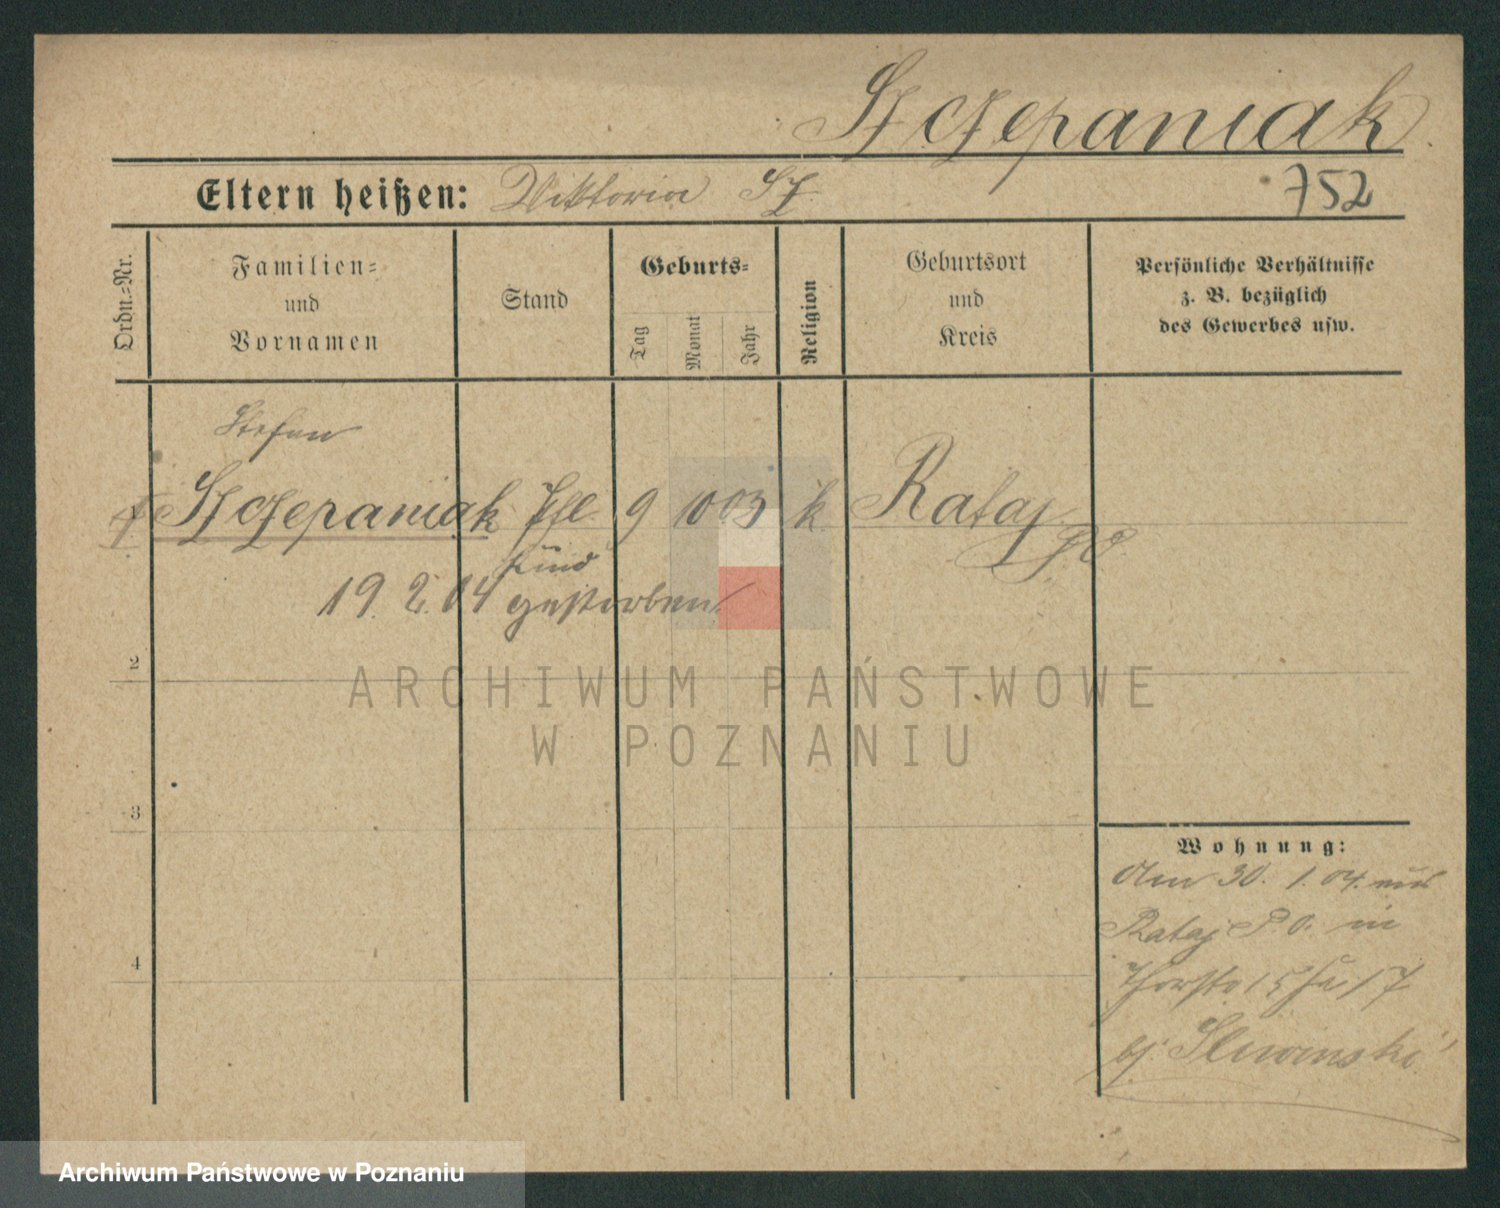 Szczepaniak
Eltern heißen: Viktoria Sz. 752
Ordn.-Nr.
Familien-
und
Vornamen
Stand
Geburts-
Tag
Monat
Jahr
Religion
Geburtsort
und
Kreis
Persönliche Verhältnisse
z. B. bezüglich
des Gewerbes usw.
Stefan
Szczepaniak Pfl. 9 10 03 k Rataj
Kind PO.
19. 2. 04 gestorben
2
3
4
Wohnung:
Den 30. 1. 04. aus
Rataj PO. in
15 17
bj. Sliwinski
ARCHIWUM PAŃSTWOWE
W POZNANIU
Archiwum Państwowe w Poznaniu